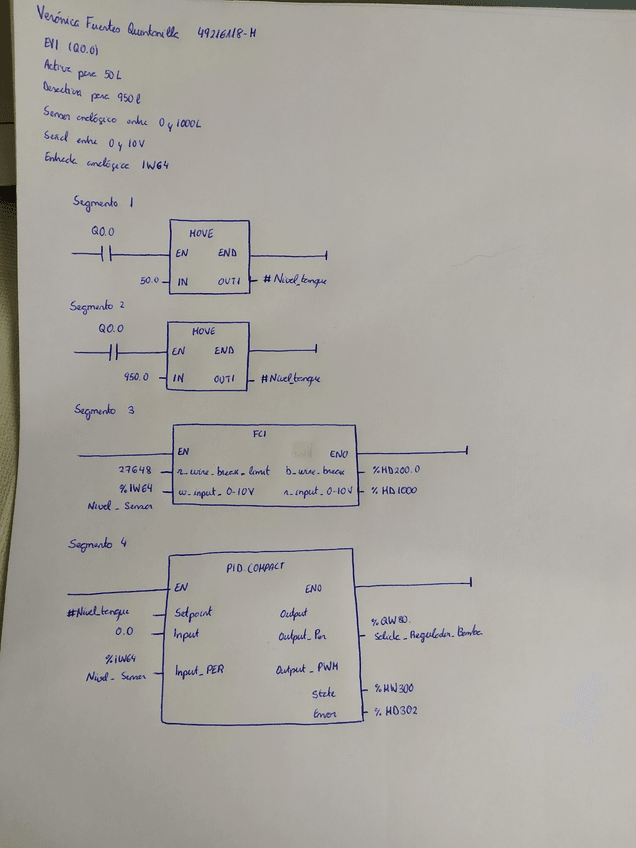 Verónica Fuentes Quintanilla 49216118-H
EV1 (Q0.0)
Activa para 50L
Desactiva para 950l
Sensor analógico entre 0 y 1000L
Señal entre 0 y 10V
Entrada analógica IW64
Segmento 1
Q0.0 MOVE
EN END
50.0 IN OUT1 #Nivel_tanque
Segmento 2
Q0.0 MOVE
EN END
950.0 IN OUT1 #Nivel_tanque
Segmento 3
FC1
EN ENO
27648 r_wire_break_limit b_wire_break %MD200.0
%IW64 w_input_0-10V r_input_0-10V %MD1000
Nivel_Sensor
Segmento 4
PID_COMPACT
EN ENO
#Nivel_tanque Setpoint Output %QW80.
0.0 Input Output_Per Salida_Regulador_Bomba
%IW64
Nivel_Sensor Input_PER Output_PWM
State %MW300
Error %MD302